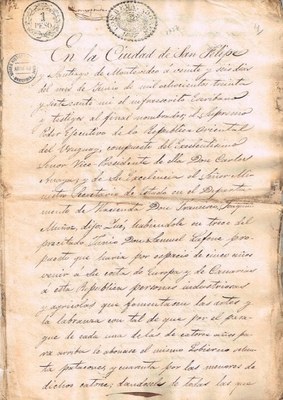 1
PESO
En la Ciudad de San Felipe
y Santiago de Montevideo á veinte y seis dias
del mes de Junio de mil ochocientos treinta
y siete ante mi el infrascrito Escribano
y testigos al final nombrados, el Supremo
Poder Ejecutivo de la Republica oriental
del Uruguay, compuesto del Excelentisimo
Señor Vice-Presidente de ella Don Carlos
Anaya, y de Su Excelencia el Señor Mi-
nistro Secretario de Estado en el Departa-
mento de Hacienda Don Francisco Joaquin
Muñoz, dijo: Que, habiendole en trece del
precitado Junio Don Samuel Lafone pro-
puesto que haria por espacio de cinco años
venir á la costa de Europa y de Canarias
á esta Republica personas industriosas
y agricolas que fomentasen las artes y
la labranza con tal de que por el pasa-
ge de cada una de las de catorce años pa-
ra arriba le abonase el mismo Gobierno
patacones, y cuarenta por las menores de
dichos catorce, de todas las que